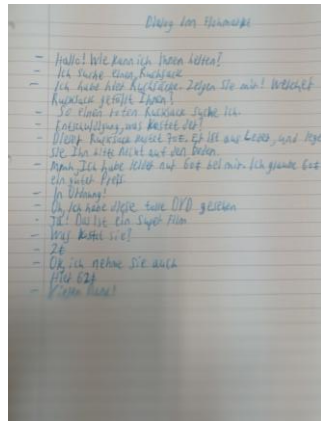 Dialog im Flohmarkt
- Hallo! Wie kann ich Ihnen helfen?
- Ich suche einen Rucksack
- Ich habe hier Rucksäcke. Zeigen Sie mir! Welcher
Rucksack gefällt Ihnen?
- So einen roten Rucksack suche ich.
- Entschuldigung, was kostet der?
- Dieser Rucksack kostet 70€. Er ist aus Leder, und lege
sie ihn bitte nicht auf den Boden.
- Mmm, Ich habe leider nur 60€ bei mir. Ich glaube 60€
ein guter Preis.
- In Ordnung!
- Oh Ich habe diese tolle DVD gesehen
- Ja! Das ist ein Super Film
- Was kostet sie?
- 2€
- OK, ich nehme sie auch
- Hier 62€
- Vielen Dank!